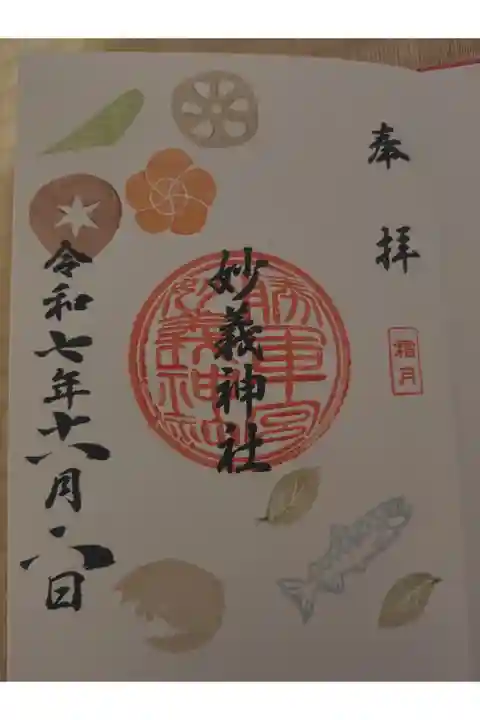 奉拝
霜月
勝軍宮
妙義神社
妙義神社
令和七年十一月八日